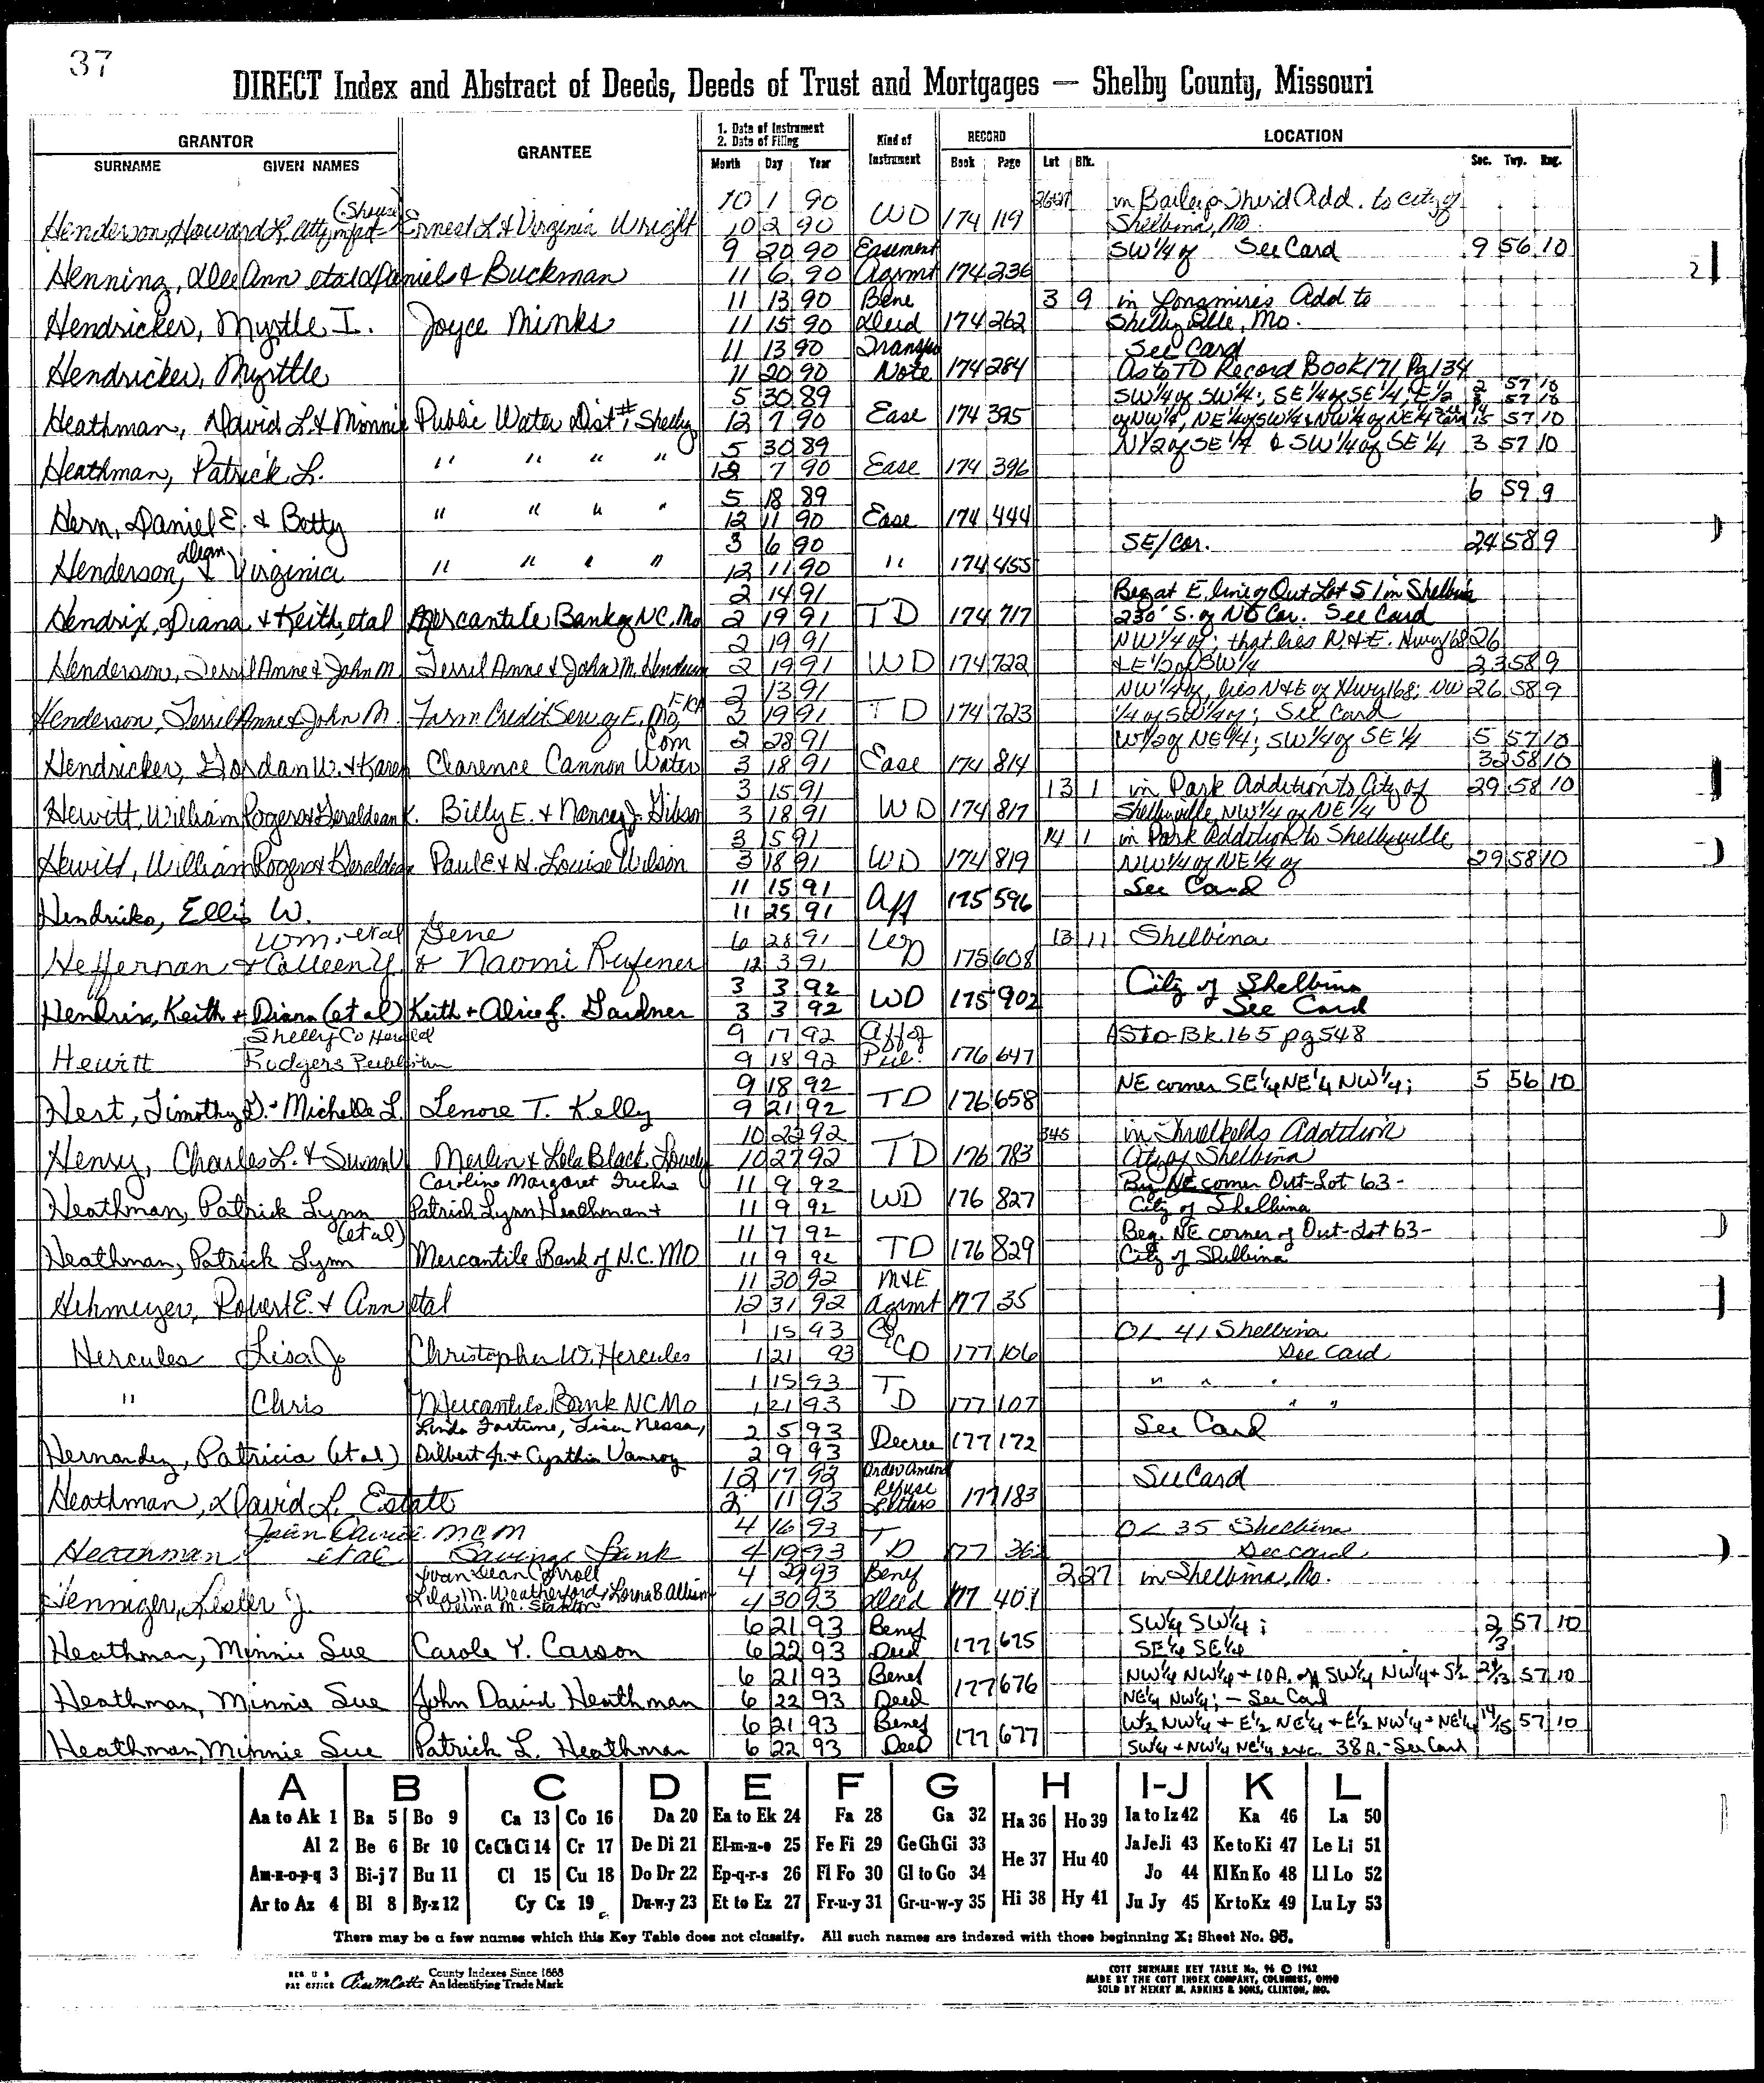 37
DIRECT Index and Abstract of Deeds, Deeds of Trust and Mortgages — Shelby County, Missouri
GRANTOR
SURNAME GIVEN NAMES
GRANTEE
1. Date of Instrument
2. Date of Filing
Month Day Year
Kind of Instrument
RECORD
Book Page
LOCATION
Lot Blk. Sec. Twp. Rng.
10 1 90 in Third Add. to City of
Henderson, Howard L. Ernest L. & Virginia Wright 10 2 90 WD 174 119 Shelbina, MO.
9 20 90 Easement SW 1/4 of See Card 9 56 10
Henning, DeeAnn etal Daniels & Buckman 11 6 90 Agrmt 174 236
11 13 90 Bene 3 9 in Longmire's Add to
Hendricker, Myrtle I. Joyce Minks 11 15 90 Deed 174 262 Shelbyville, Mo.
11 13 90 See Card
Hendricker, Myrttle 11 20 90 Note 174 284 As to TD Record Book 171 Pg 134
5 30 89 SW 1/4 of SW 1/4; SE 1/4 of SE 1/4; E 1/2 2 57 10
Heathman, David L. & Minnie Public Water Dist #1 Shelby 12 7 90 Ease 174 395 of NW 1/4, NE 1/4 of SW 1/4 & NW 1/4 of NE 1/4 15 57 10
5 30 89 N 1/2 of SE 1/4 & SW 1/4 of SE 1/4 3 57 10
Heathman, Patrick L. " " " " 12 7 90 Ease 174 396
5 18 89 6 59 9
Hern, Daniel E. & Betty " " " " 12 11 90 Ease 174 444
3 6 90 SE/Cor. 24 58 9
Henderson, Dean & Virginia " " " " 12 11 90 " 174 455
2 14 91 Beg at E. line of Out Lot 51 in Shelbina
Hendrix, Diana & Keith, etal Mercantile Bank of NC. Mo 2 19 91 TD 174 717 230' S. of NE Cor. See Card
2 19 91 NW 1/4 of; that lies N. & E. Hwy 168 26
Henderson, Terril Anne & John M. Terril Anne & John M. Henderson 2 19 91 WD 174 722 & E 1/2 of SW 1/4 23 58 9
2 13 91 NW 1/4 of, lies N & E of Hwy 168; NW 26 58 9
Henderson, Terril Anne & John M. Farm Credit Serv of E. Mo 2 19 91 TD 174 723 1/4 of SW 1/4 of; See Card
Com 2 28 91 W 1/2 of NE 1/4; SW 1/4 of SE 1/4 5 57 10
Hendricker, Gordan W. & Karen Clarence Cannon Water 3 18 91 Ease 174 814 32 58 10
3 15 91 13 1 in Park Addition to City of 29 58 10
Hewitt, William Rogers & Geraldean K. Billy E. & Nancy J. Gibson 3 18 91 WD 174 817 Shelbyville, NW 1/4 of NE 1/4
3 15 91 14 1 in Park addition to Shelbyville
Hewitt, William Rogers & Geraldean Paul E & H. Louise Wilson 3 18 91 WD 174 819 NW 1/4 of NE 1/4 of 29 58 10
11 15 91 See Card
Hendricks, Ellis W. 11 25 91 Aff 175 596
Wm. etal Gene 6 28 91 WD 13 11 Shelbina
Heffernan & Colleen Y. & Naomi Rufener 12 3 91 175 608
3 3 92 City of Shelbina
Hendrix, Keith & Diana (et al) Keith & Alice J. Gardner 3 3 92 WD 175 902 See Card
Shelby Co Herald 9 17 92 Aff of As to Bk. 165 pg 548
Hewitt Rodgers 9 18 92 176 647
9 18 92 NE corner SE 1/4 NE 1/4 NW 1/4; 5 56 10
Hert, Timothy & Michelle L. Lenore T. Kelly 9 21 92 TD 176 658
10 22 92 345 in Threlkelds Addition
Henry, Charles L. & Susan Merlin & Lela Black 10 27 92 TD 176 783 City of Shelbina
Caroline Margaret Fuchs 11 9 92 Beg. NE corner Out-Lot 63-
Heathman, Patrick Lynn Patrick Lynn Heathman & 11 9 92 WD 176 827 City of Shelbina
(et al) 11 7 92 Beg. NE corner of Out-Lot 63-
Heathman, Patrick Lynn Mercantile Bank of N.C. MO 11 9 92 TD 176 829 City of Shelbina
11 30 92 M&E
Hehmeyer, Robert E. & Ann etal 12 31 92 Agrmt 177 35
1 15 93 OL 41 Shelbina
Hercules Lisa J. Christopher W. Hercules 1 21 93 QCD 177 106 See Card
1 15 93 T " " "
" Chris Mercantile Bank NC Mo 1 21 93 D 177 107 " "
Linda Fortune, Nessa, 2 5 93 See Card
Hernandez, Patricia (et al) Delbert Jr. & Cynthia Vanroy 2 9 93 Decree 177 172
12 17 92 Order Amend See Card
Heathman, David L. Estate 2 11 93 Refuse Letters 177 183
M C M 4 16 93 T OL 35 Shelbina
Heathman etal Savings Bank 4 19 93 D 177 362 See card
Ivan Dean Carroll 4 29 93 Benef 2 27 in Shelbina, Mo.
Henniger, Lester J. Lila M. Weatherford, Lorna B. Allison 4 30 93 Deed 177 401
Verna M. Stanton
6 21 93 Benef SW 1/4 SW 1/4; 2/3 57 10
Heathman, Minnie Sue Carole Y. Carson 6 22 93 Deed 177 675 SE 1/4 SE 1/4
6 21 93 Benef NW 1/4 NW 1/4 + 10 A. of SW 1/4 NW 1/4 + S 1/2 2/3 57 10
Heathman, Minnie Sue John David Heathman 6 22 93 Deed 177 676 NE 1/4 NW 1/4; - See Card
6 21 93 Benef W 1/2 NW 1/4 + E 1/2 NE 1/4 + E 1/2 NW 1/4 + NE 1/4 14/15 57 10
Heathman, Minnie Sue Patrick L. Heathman 6 22 93 Deed 177 677 SW 1/4 + NW 1/4 NE 1/4 exc. 38 A. - See Card
A B C D E F G H I-J K L
Aa to Ak 1 Ba 5 Bo 9 Ca 13 Co 16 Da 20 Ea to Ek 24 Fa 28 Ga 32 Ha 36 Ho 39 Ia to Iz 42 Ka 46 La 50
Al 2 Be 6 Br 10 Ce Ch Ci 14 Cr 17 De Di 21 El-m-n-o 25 Fe Fi 29 Ge Gh Gi 33 He 37 Hu 40 Ja Je Ji 43 Ke to Ki 47 Le Li 51
Am-n-o-p-q 3 Bi-j 7 Bu 11 Cl 15 Cu 18 Do Dr 22 Ep-q-r-s 26 Fl Fo 30 Gl to Go 34 Jo 44 Kl Kn Ko 48 Ll Lo 52
Ar to Az 4 Bl 8 By-z 12 Cy Cz 19 Du-w-y 23 Et to Ez 27 Fr-u-y 31 Gr-u-w-y 35 Hi 38 Hy 41 Ju Jy 45 Kr to Kz 49 Lu Ly 53
There may be a few names which this Key Table does not classify. All such names are indexed with those beginning X; Sheet No. 95.
REG U S PAT OFFICE County Indexes Since 1888
An Identifying Trade Mark
COTT SURNAME KEY TABLE No. 96 © 1962
MADE BY THE COTT INDEX COMPANY, COLUMBUS, OHIO
SOLD BY HENRY M. ADKINS & SONS, CLINTON, MO.